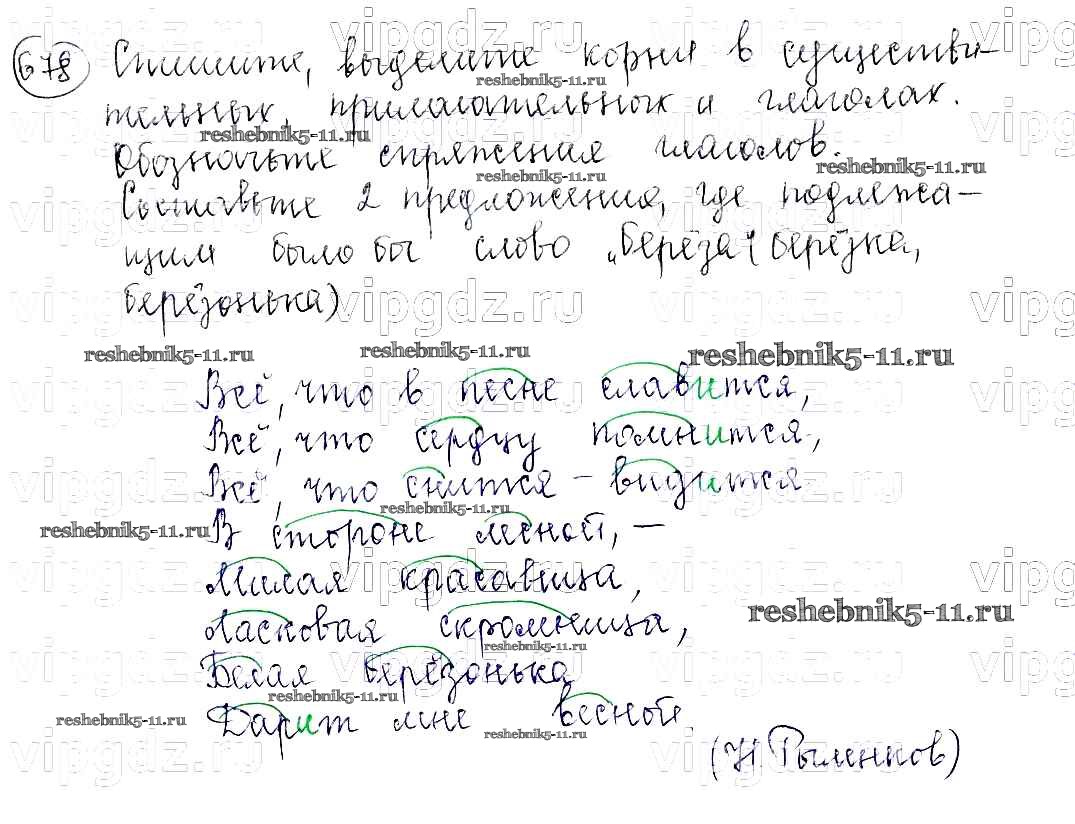 678 Спишите, выделите корни в существи-
тельных, прилагательных и глаголах.
Обозначьте спряжения глаголов.
Составьте 2 предложения, где подлежа-
щим было бы слово „берёза" (берёзка,
берёзонька)
Всё, что в песне славится,
Всё, что сердцу помнится,
Всё, что снится – видится
В стороне лесной, –
Милая красавица,
Ласковая скромница,
Белая берёзонька
Дарит мне весной.
(Н. Рыленков)
vipgdz.ru
reshebnik5-11.ru